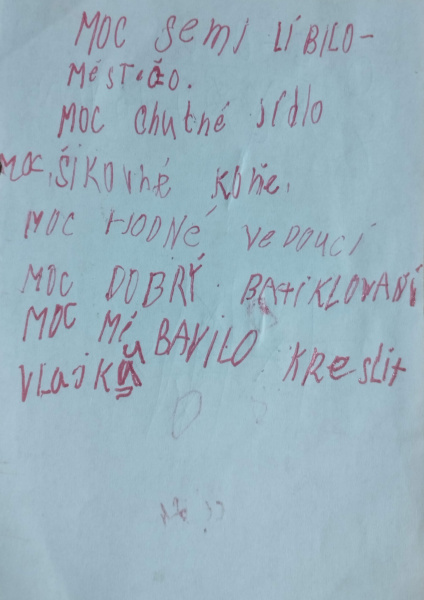 MOC SEMI LÍBILO-
MĚSTEČO.
MOC Chutné jídlo
MOC ŠIKOVNÉ KOŇE.
MOC HODNÉ VEDOUCÍ
MOC DOBRÝ BATIKLOVANÍ
MOC MĚ BAVILO KRESLIT
VLAJKU